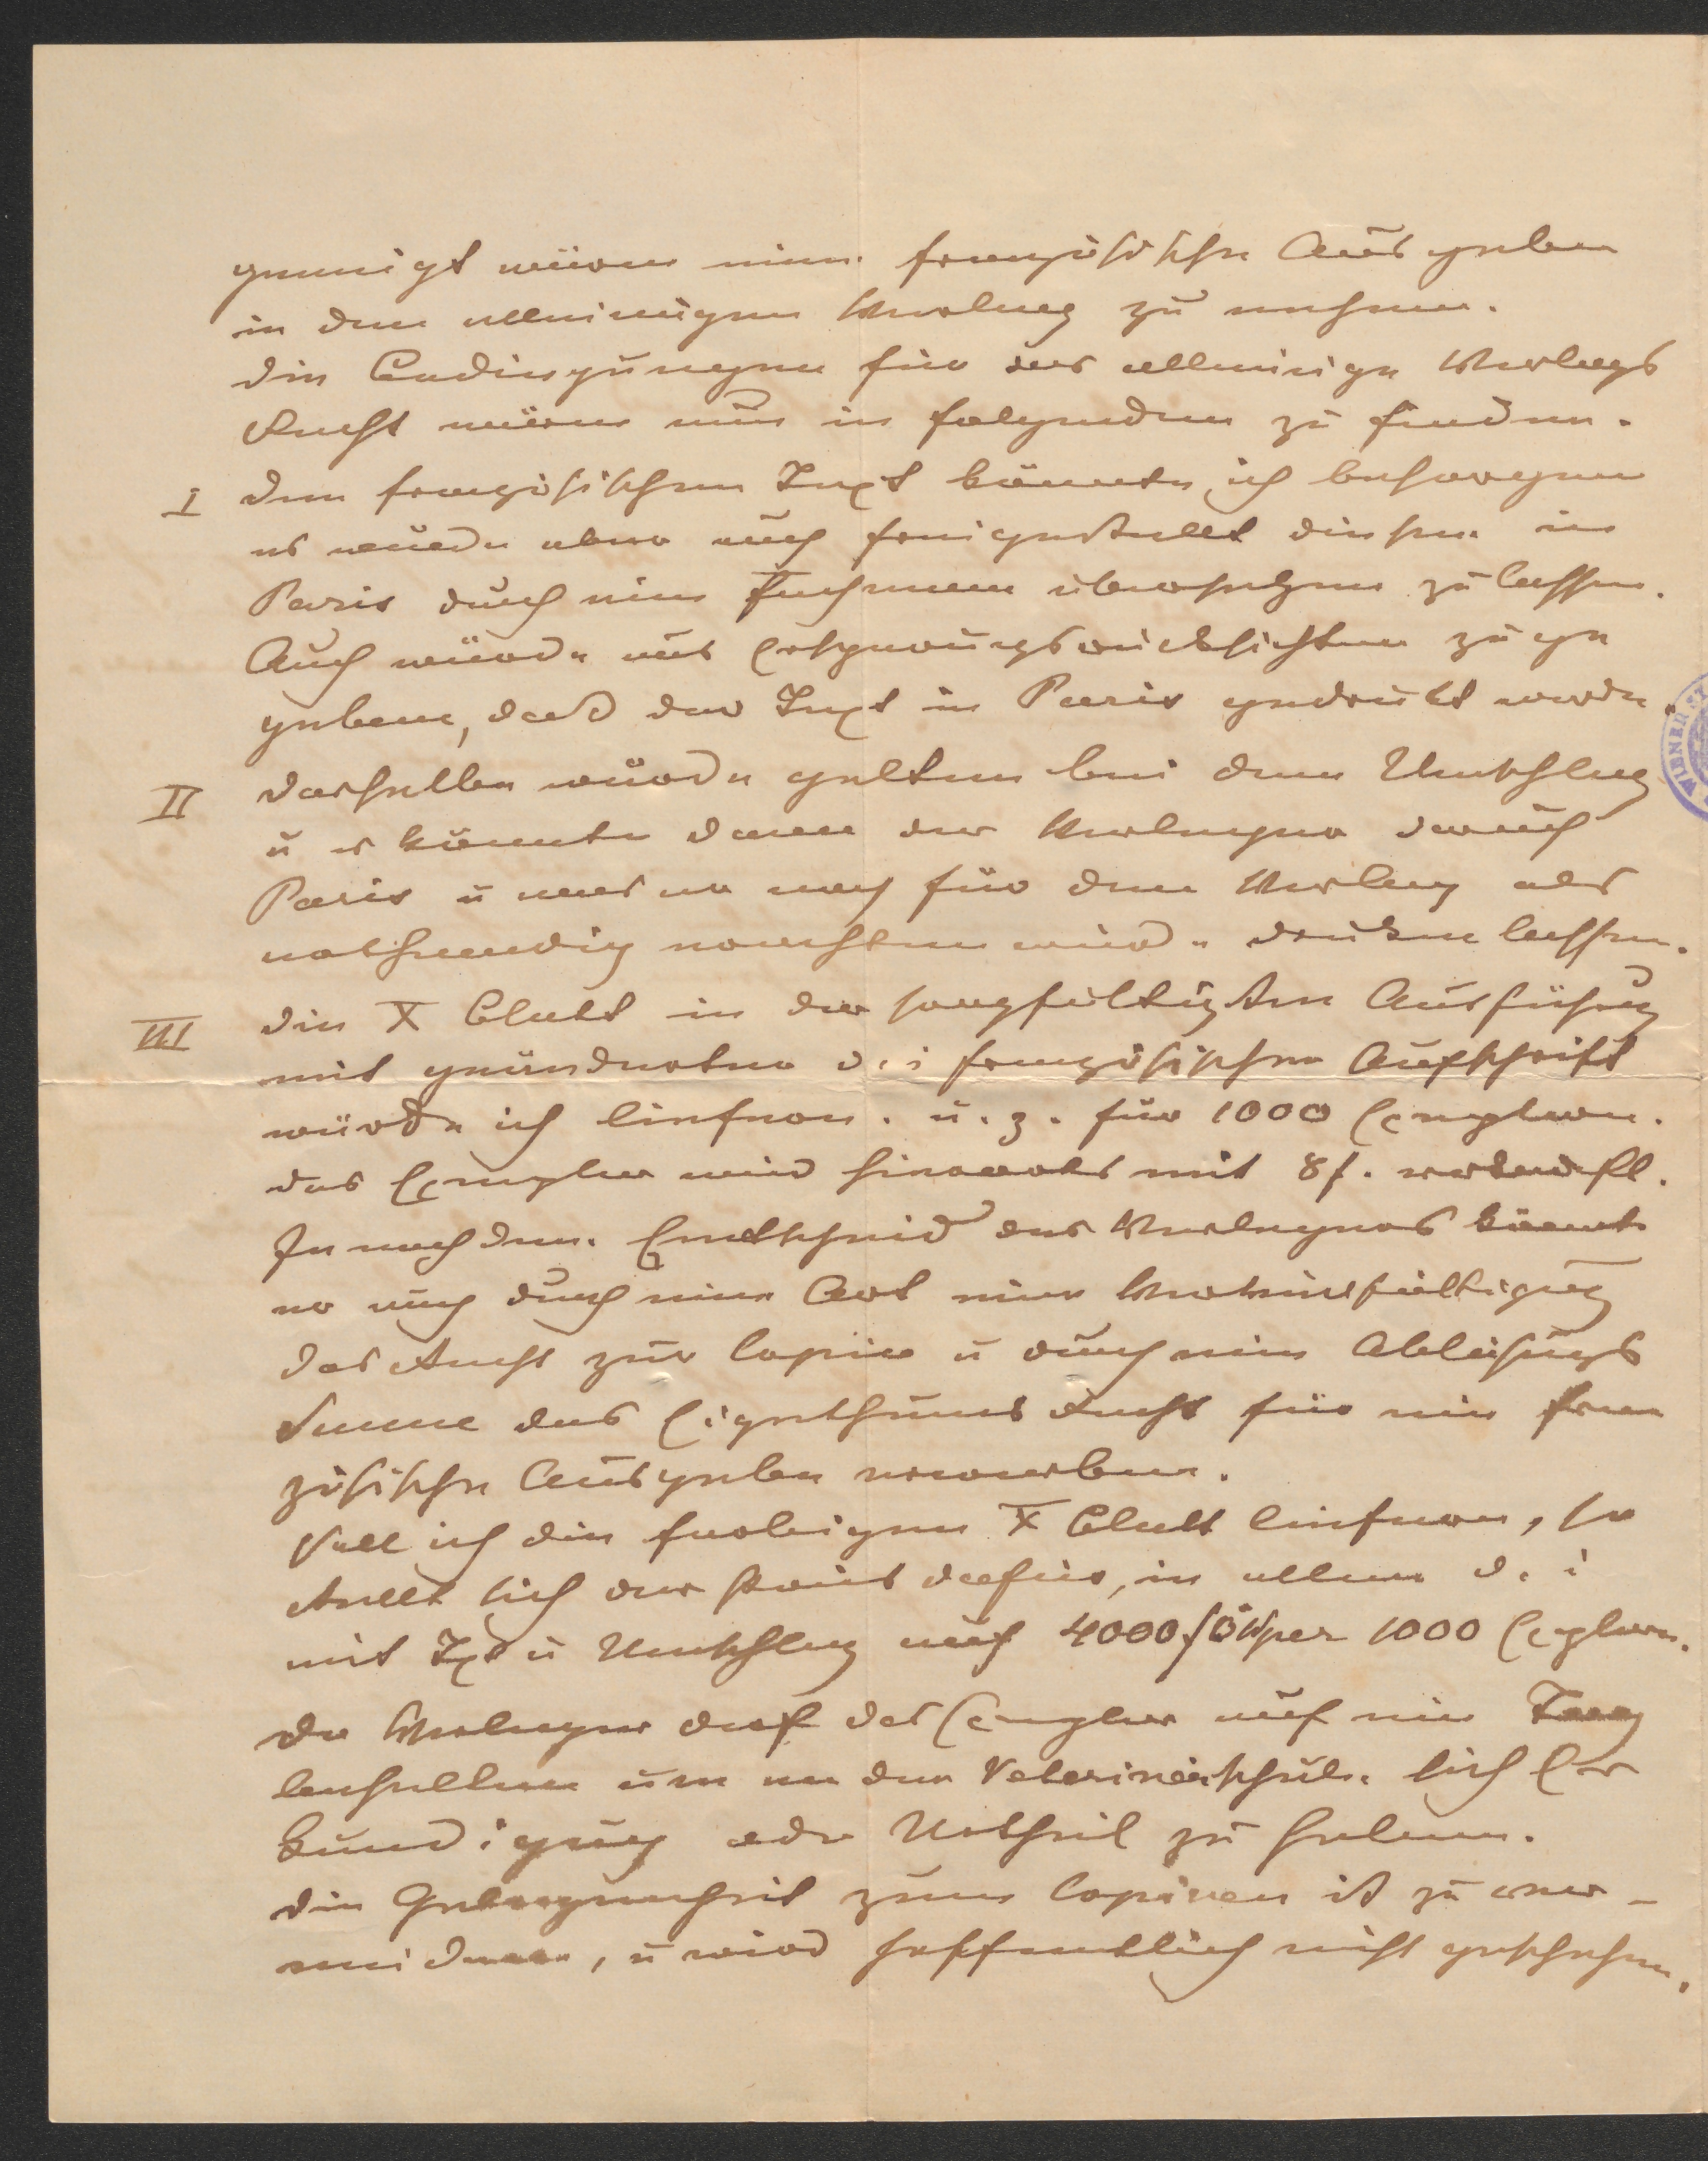 geneigt wären eine französische Ausgabe
in den alleinigen Verlag zu nehmen.
Die Bedingungen für das alleinige Verlags
Recht wären nun in folgendem zu finden.
I Den französischen Text könnte ich besorgen
es würde aber auch freigestellt diesen in
Paris durch einen Fachmann übersetzen zu lassen.
Auch würde aus Ersparungsrücksichten zuge
geben, daß der Text in Paris gedruckt werde.
II Dasselbe würde gelten bei dem Umschlag
u es könnte dann der Verleger darauf
Paris u was er noch für den Verlag als
nothwendig erachten wird drucken lassen.
III Die X Blatt in der sorgfältigsten Ausführung
mit geänderter d. i französischer Aufschrift
würde ich liefern. u. z. für 1000 Exemplare.
das Exemplar wird hierorts mit 8 f. verkauft.
Je nach dem Entscheid des Verlegers könnte
er auch durch eine Art einer Vervielfältigung
das Recht zur Copie u durch eine Ablösungs
Summe das Eigenthums Recht für eine fran
zösische Ausgabe erwerben.
Soll ich die farbigen X Blatt liefern, so
stellt sich der Preis dafür, in allem d. i
mit Txt u Umschlag auf 4000 f öW per 1000 Explare.
Der Verleger darf das Exemplar auf ein Tag
behalten um an der Veterinärschule sich Er
kundigung oder Urtheil zu holen.
Die Gelegenheit zum Copiren ist zu ver-
meiden, u wird hoffentlich nicht geschehen.
WIENER ST